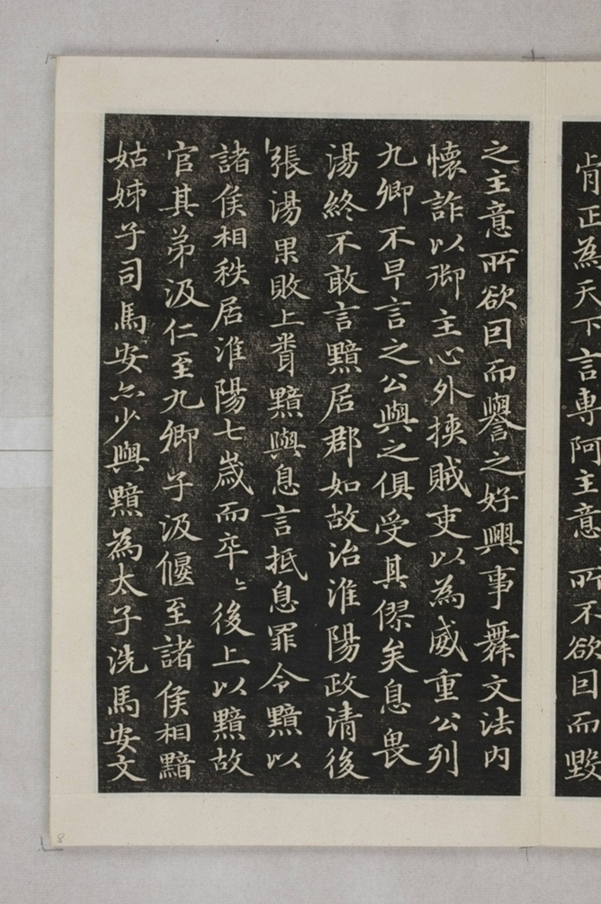 肯正為天下言專阿主意所不欲因而毀
之主意所欲因而譽之好興事舞文法内
懷詐以御主心外挾賊吏以為威重公列
九卿不早言之公與之俱受其僇矣息畏
湯終不敢言黯居郡如故治淮陽政清後
張湯果敗上聞黯與息言抵息罪令黯以
諸侯相秩居淮陽七歲而卒〻後上以黯故
官其弟汲仁至九卿子汲偃至諸侯相黯
姑姊子司馬安亦少與黯為太子洗馬安文
8